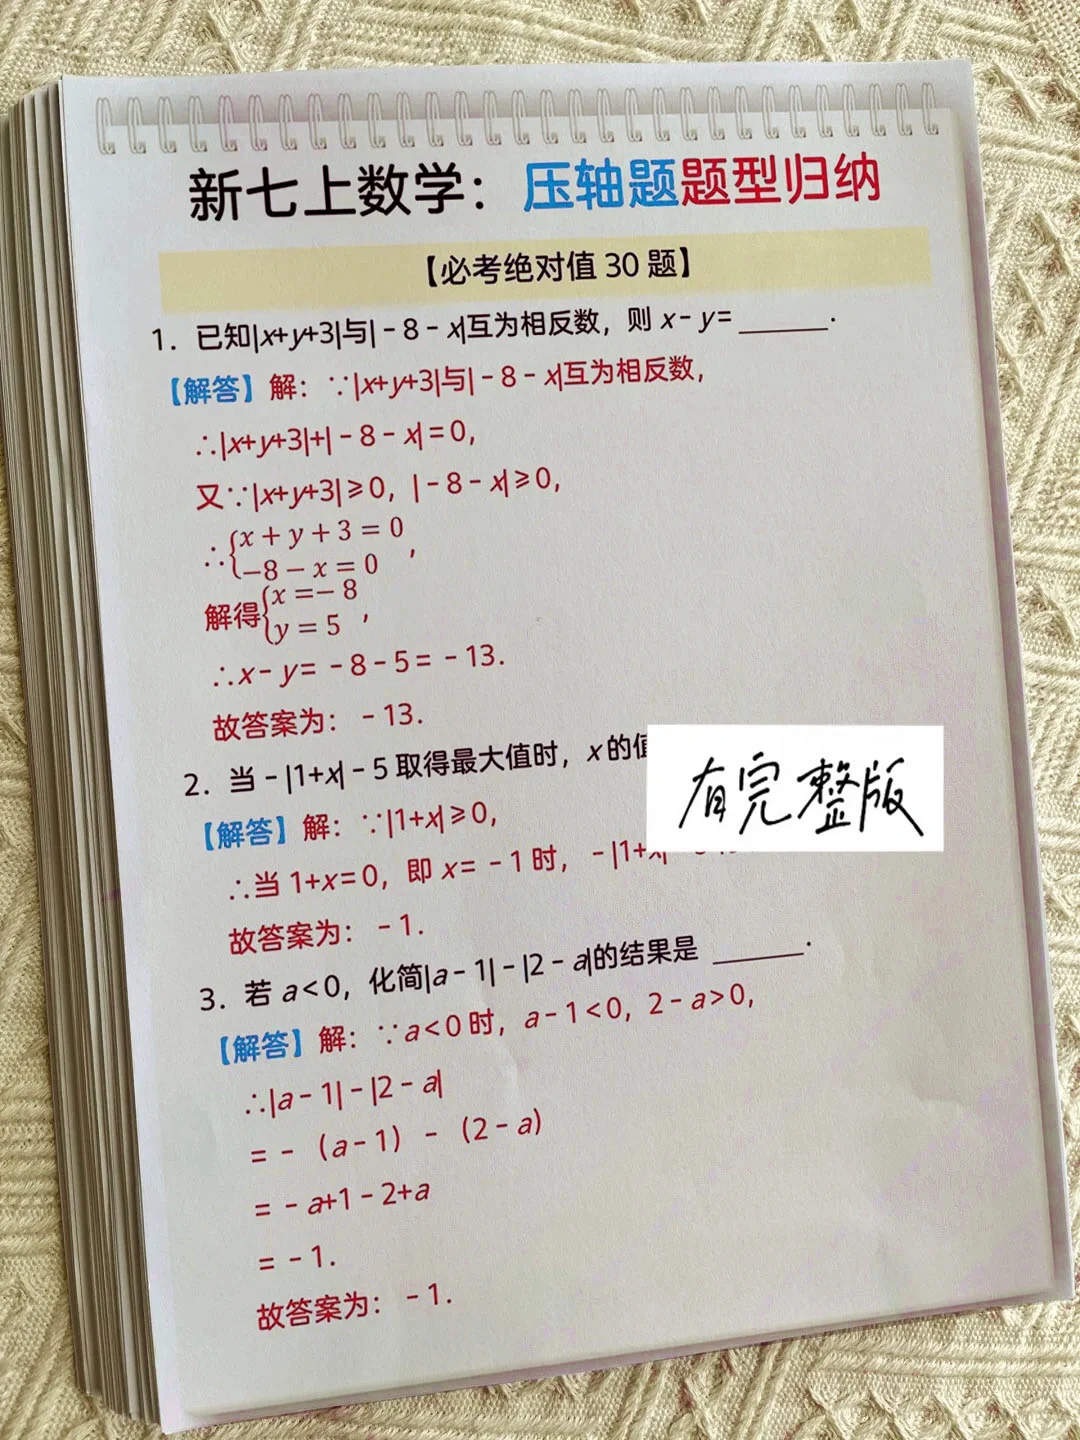 新七上数学：压轴题题型归纳
【必考绝对值 30 题】
1．已知|x+y+3|与|－8－x|互为相反数，则 x－y=______．
【解答】解：∵|x+y+3|与|－8－x|互为相反数，
∴|x+y+3|+|－8－x|=0，
又∵|x+y+3|≥0，|－8－x|≥0，
∴{x + y + 3 = 0
−8 − x = 0，
解得{x =− 8
y = 5，
∴x－y=－8－5=－13．
故答案为：－13．
2．当－|1+x|－5 取得最大值时，x 的值
有完整版
【解答】解：∵|1+x|≥0，
∴当 1+x=0，即 x=－1 时，－|1+x|
故答案为：－1．
3．若 a<0，化简|a－1|－|2－a|的结果是 ______．
【解答】解：∵a<0 时，a－1<0，2－a>0，
∴|a－1|－|2－a|
=－（a－1）－（2－a）
=－a+1－2+a
=－1．
故答案为：－1．